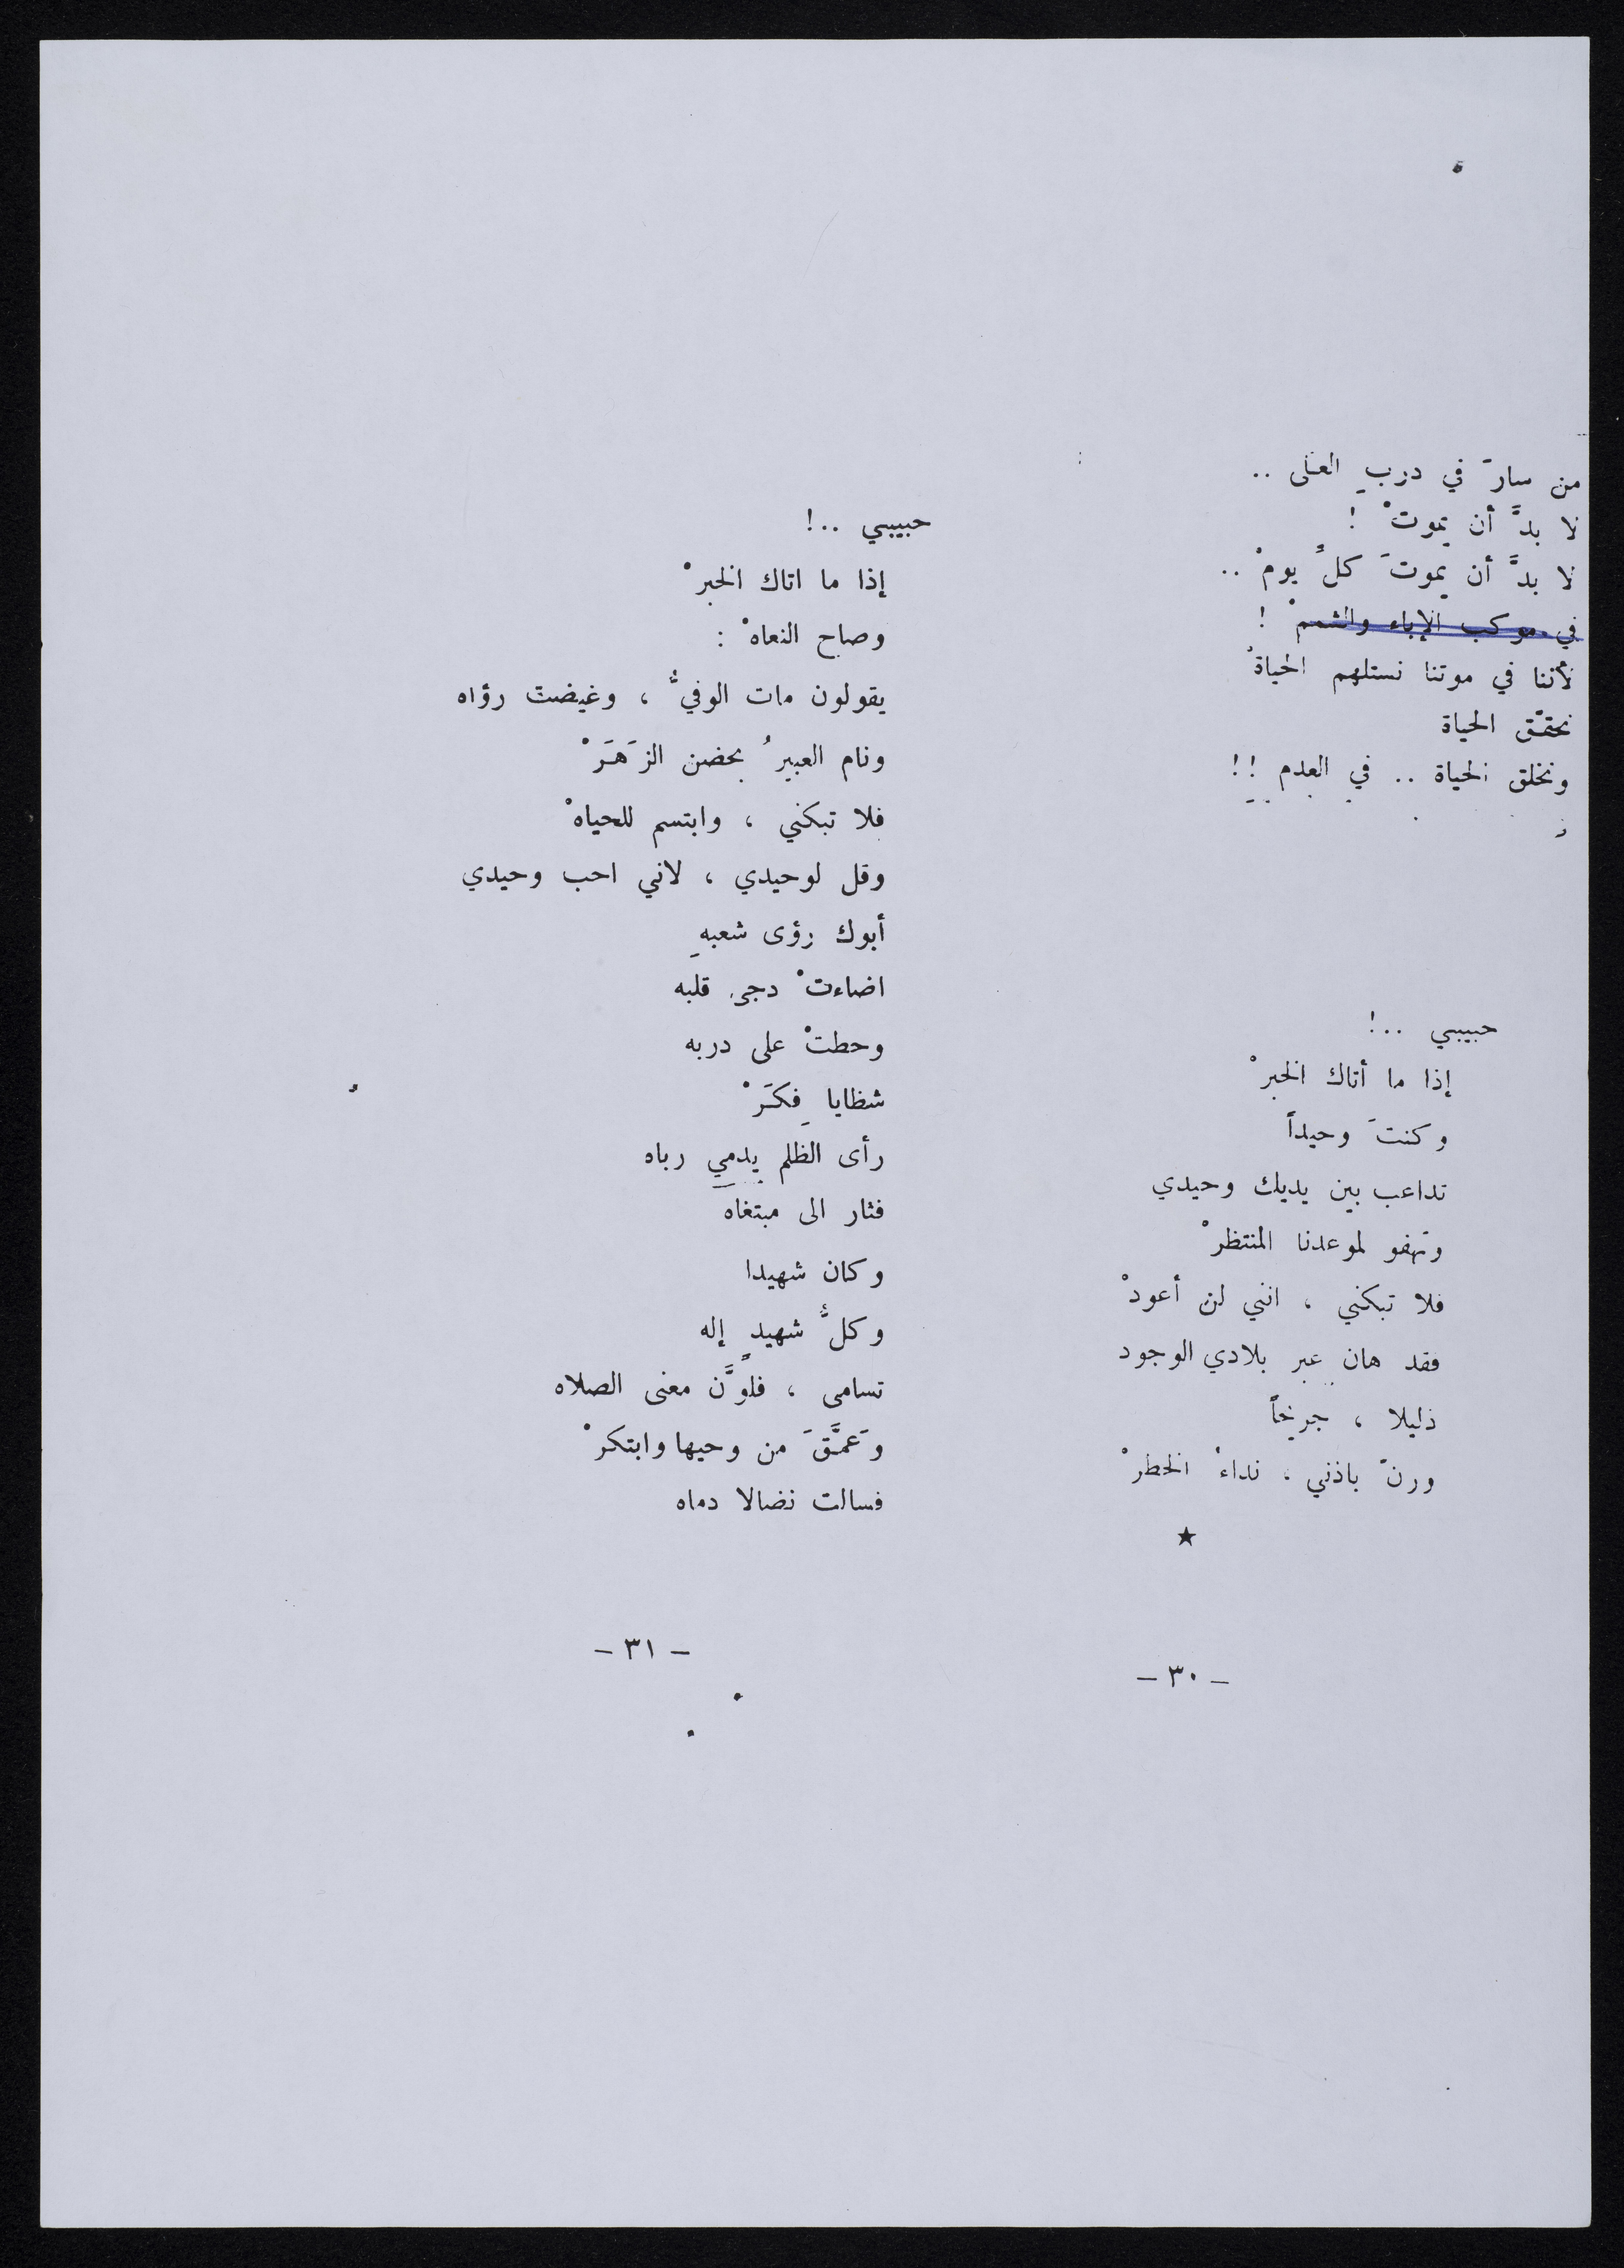 من سارَ في دربِ العلى ..
لا بدَّ أن يموتْ !
لا بدَّ أن يموتَ كلَّ يومْ ..
في موكب الإباء والشممْ !
لأننا في موتنا نستلهم الحياةْ
نحقّق الحياة
ونخلق الحياة .. في العدم !!
حبيبي ..!
إذا ما أتاك الخبرْ
وكنتَ وحيداً
تداعب بين يديك وحيدي
وتهفو لموعدنا المنتظرْ
فلا تبكني ، انني لن أعودْ
فقد هان عبر بلادي الوجود
ذليلا ، جريحاً
ورنّ باذني ، نداءُ الخطرْ
★
– ٣٠ –
حبيبي ..!
إذا ما اتاك الخبرْ
وصاح النعاهْ :
يقولون مات الوفيُّ ، وغيضت رؤاه
ونام العبيرُ بحضن الزَهَرْ
فلا تبكني ، وابتسم للحياهْ
وقل لوحيدي ، لاني احب وحيدي
أبوك رؤى شعبهِ
اضاءتْ دجى قلبه
وحطتْ على دربه
شظايا فِكَرْ
رأى الظلم يدمي رباه
فثار الى مبتغاه
وكان شهيدا
وكلُّ شهيدٍ إله
تسامى ، فلوَّن معنى الصلاه
وَعمَّقَ من وحيها وابتكرْ
فسالت نضالا دماه
– ٣١ –